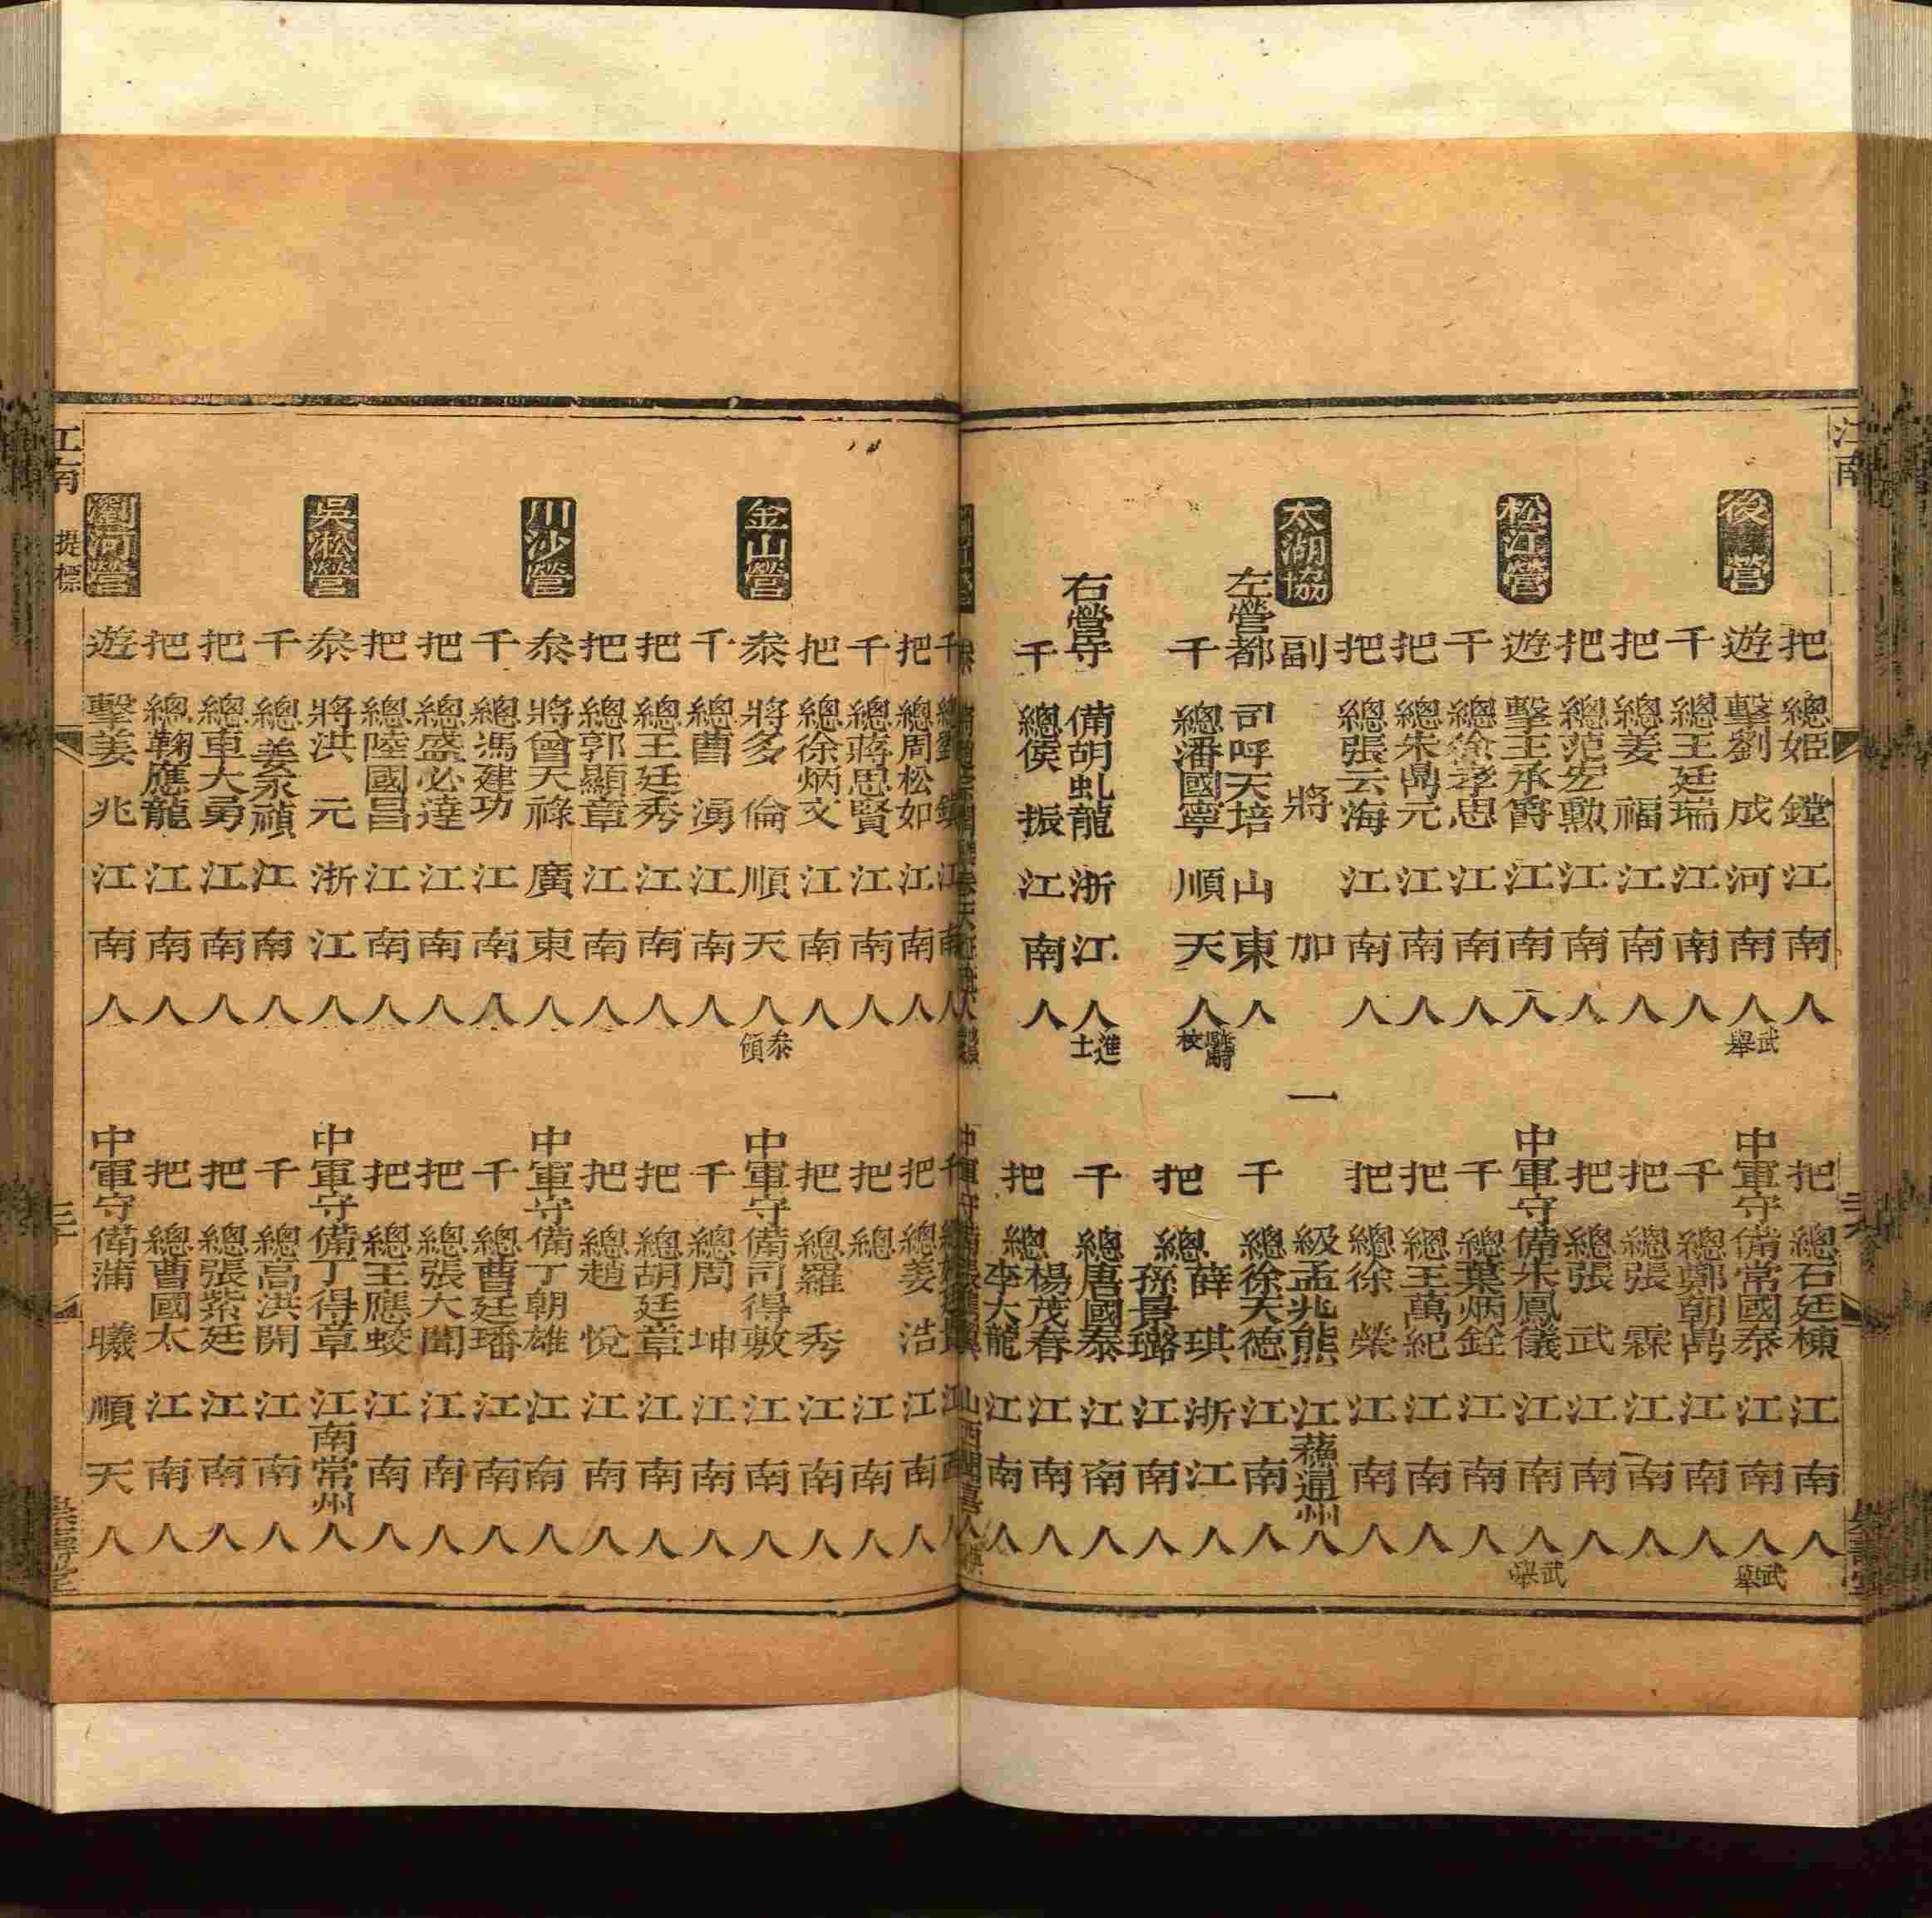 江南
把總姬鏜江南人
把總石廷棟江南人
後營
遊擊劉成河南人武舉
中軍守備常國泰江南人武舉
千總王廷瑞江南人
千總鄭朝鼎江南人
把總姜福江南人
把總張霖江南人
把總范宏勳江南人
把總張武江南人
松江營
遊擊王承爵江南人
中軍守備朱鳳儀江南人武舉
千總徐孝忠江南人
千總葉炳銓江南人
把總朱鼎元江南人
把總王萬紀江南人
把總張云海江南人
把總徐榮江南人
太湖協
副將加一級孟兆熊江蘇通州人
左營都司呼天培山東人
千總徐天德江南人
千總潘國寧順天人驍騎校
把總薛琪浙江人
孫景璐江南人
右營守備胡虬龍浙江人進士
千總唐國泰江南人
千總侯振江南人
把總楊茂春江南人
李大龍江南人
把總周松如江南人
把總姜浩江南人
千總蔣思賢江南人
把總江南人
把總徐炳文江南人
把總羅秀江南人
金山營
叅將多倫順天人叅領
中軍守備司得敷江南人
千總曹湧江南人
千總周坤江南人
把總王廷秀江南人
把總胡廷章江南人
把總郭顯章江南人
把總趙悅江南人
川沙營
叅將曾天祿廣東人
中軍守備丁朝雄江南人
千總馮建功江南人
千總曹廷璠江南人
把總盛必達江南人
把總張大聞江南人
把總陸國昌江南人
把總王應蛟江南人
吳淞營
叅將洪元浙江人
中軍守備丁得章江南常州人
千總姜永禎江南人
千總高洪開江南人
把總車大勇江南人
把總張紫廷江南人
把總鞠應龍江南人
把總曹國太江南人
劉河營
遊擊姜兆江南人
中軍守備蒲曦順天人
江南 提標